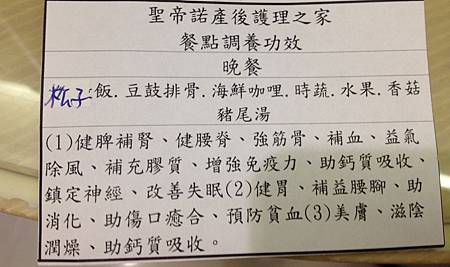 聖帝諾產後護理之家
餐點調養功效
晚餐
松子飯.豆鼓排骨.海鮮咖哩.時蔬.水果.香菇
豬尾湯
(1)健脾補腎、健腰脊、強筋骨、補血、益氣
除風、補充膠質、增強免疫力、助鈣質吸收、
鎮定神經、改善失眠(2)健胃、補益腰腳、助
消化、助傷口癒合、預防貧血(3)美膚、滋陰
潤燥、助鈣質吸收。